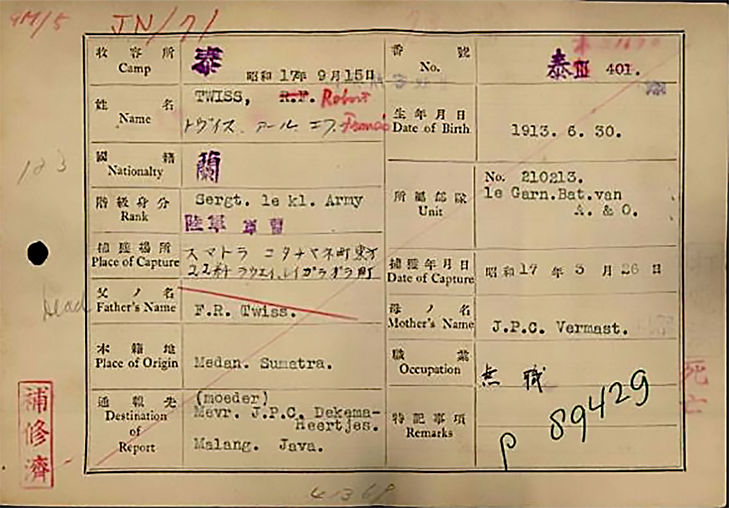 JN/71
收容所 Camp
泰 昭和 17年 9月15日
番號 No.
泰Ⅲ 401.
姓名 Name
TWISS, R.F. Robert
トヴイス アール エフ Francis
生年月日 Date of Birth
1913. 6. 30.
國籍 Nationalty
蘭
階級身分 Rank
Sergt. 1e kl. Army
陸軍 軍曹
所屬部隊 Unit
No. 210213.
1e Garn.Bat.van
A. & O.
捕獲場所 Place of Capture
スマトラ コタチヤネ町東方
捕獲年月日 Date of Capture
昭和 17 年 3 月 26 日
父ノ名 Father's Name
F.R. Twiss.
母ノ名 Mother's Name
J.P.C. Vermast.
本籍地 Place of Origin
Medan. Sumatra.
職業 Occupation
無職
通報先 Destination of Report
(moeder)
Mevr. J.P.C. Dekema-
Heertjes.
Malang. Java.
特記事項 Remarks
P 89429
123
dead
補修濟
死亡